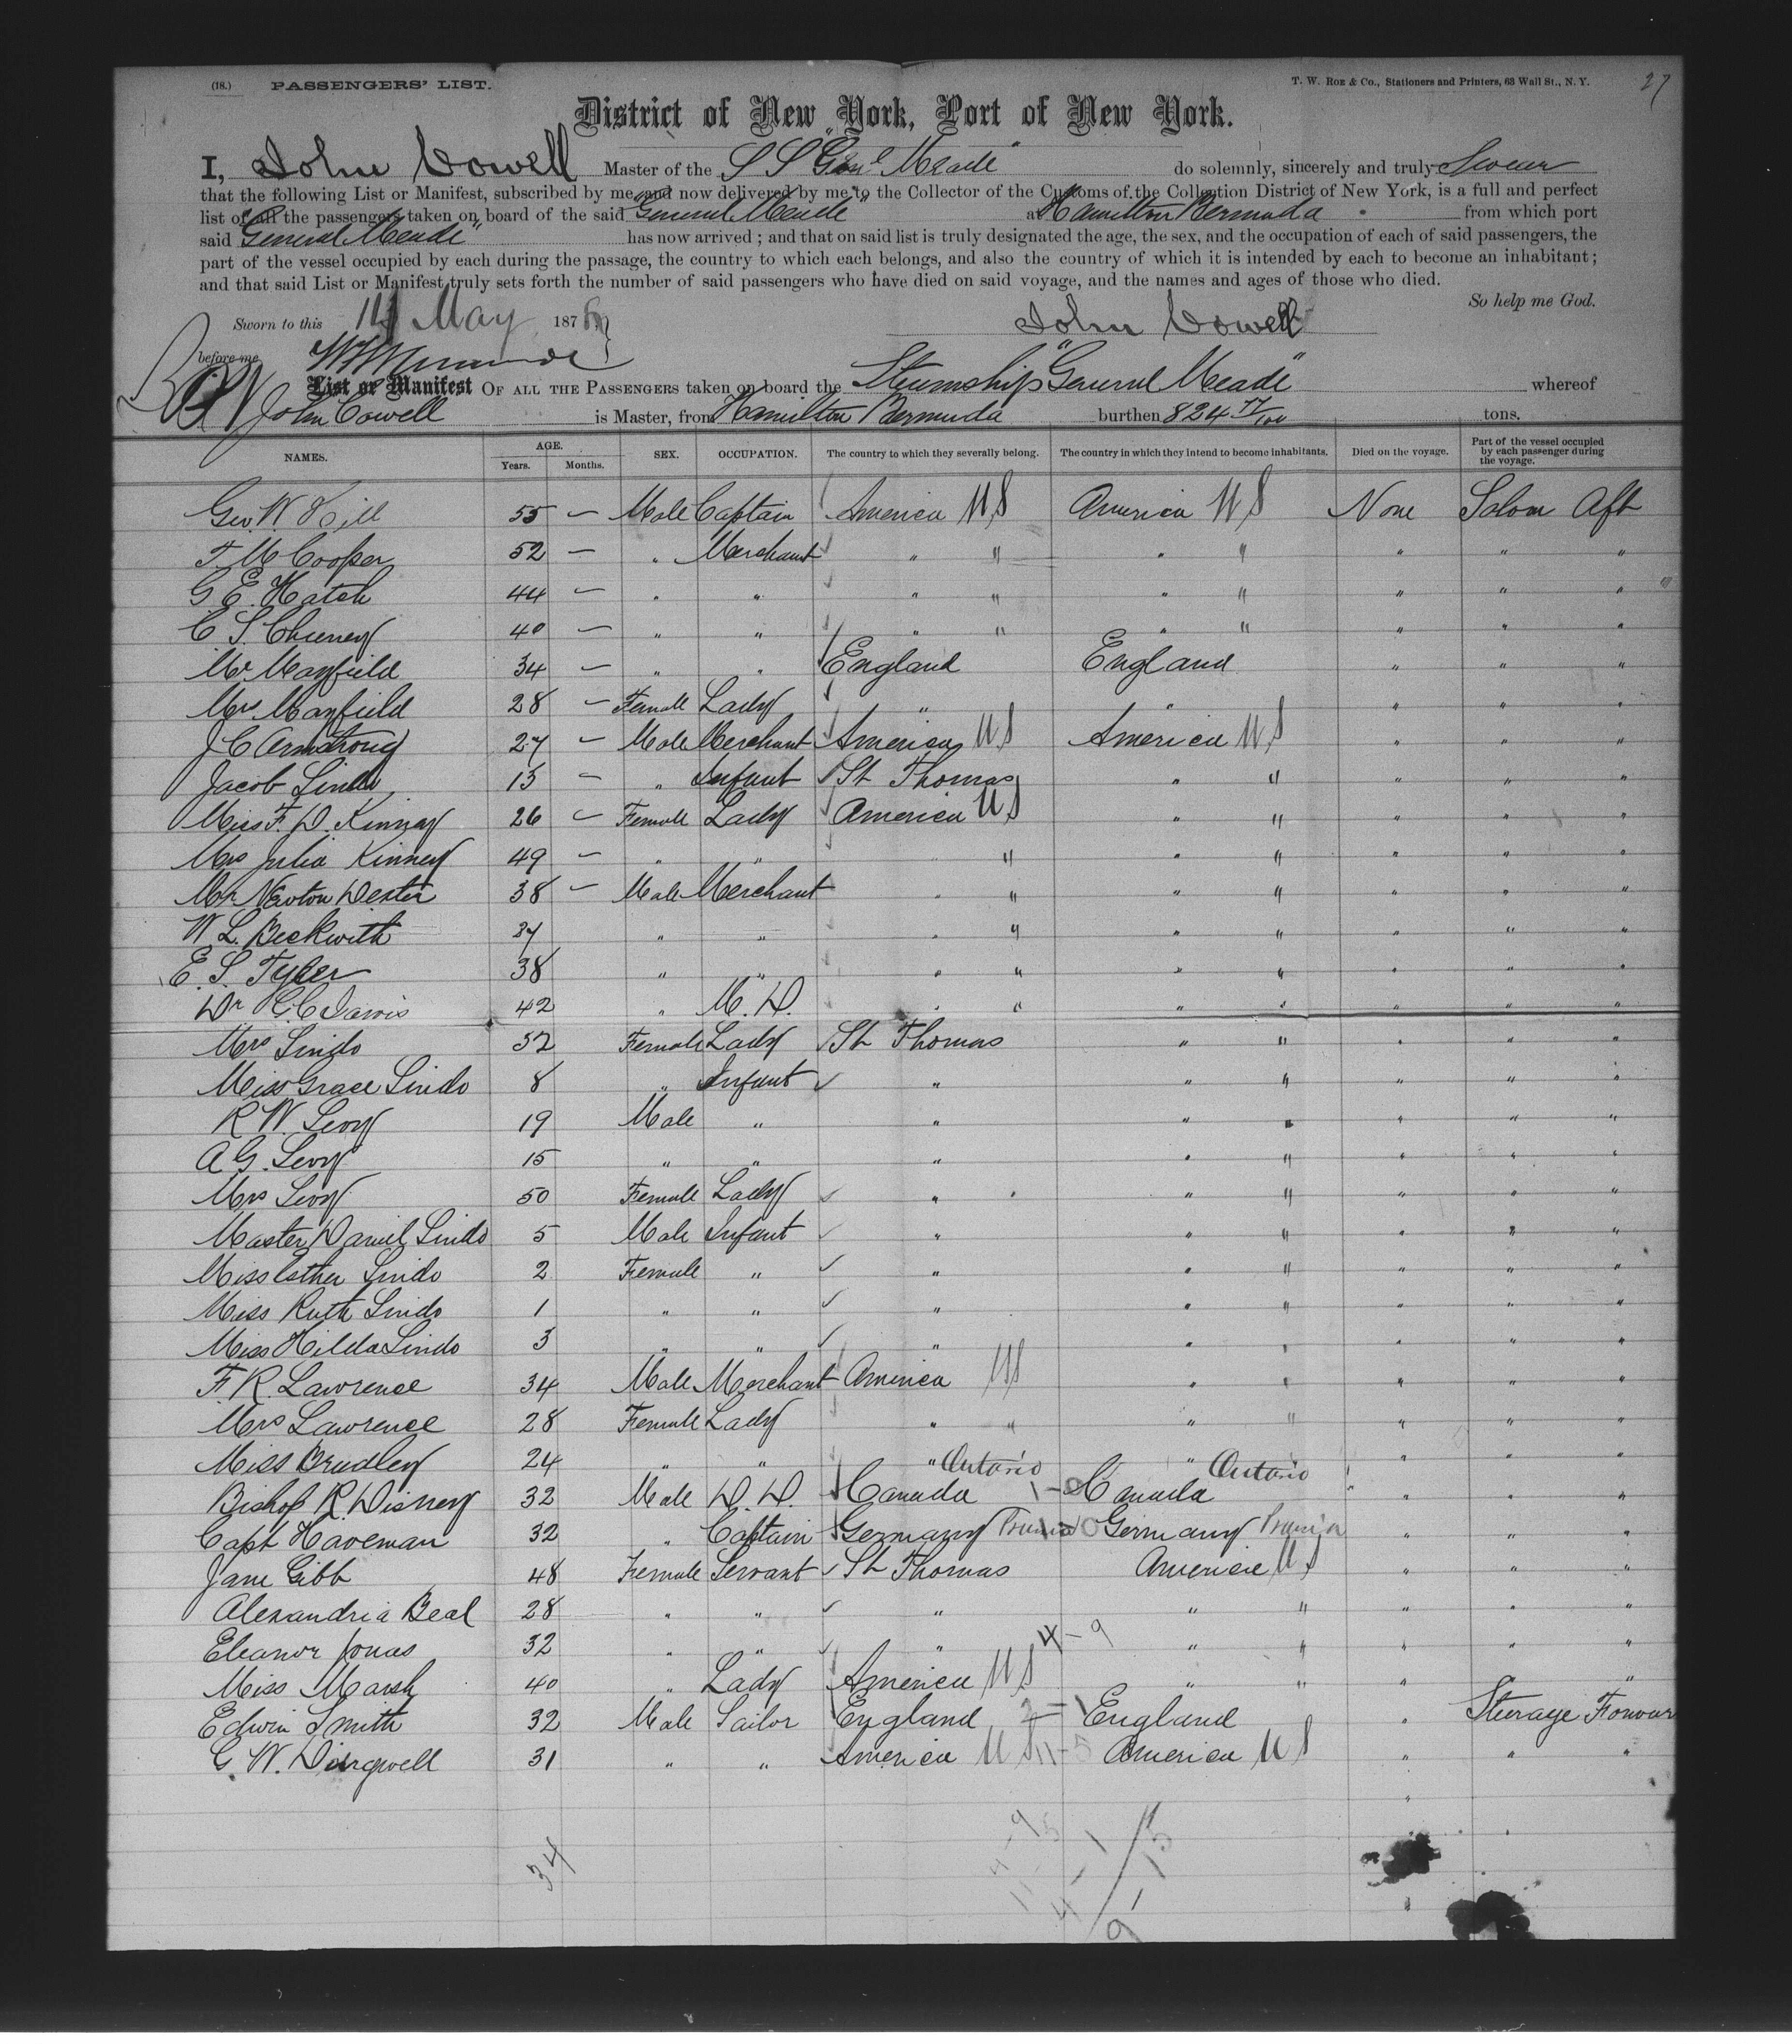 (18.) PASSENGERS' LIST. T. W. Roe & Co., Stationers and Printers, 63 Wall St., N. Y. 27
District of New York, Port of New York.
I, John Cowell Master of the S S "Genl Meade" do solemnly, sincerely and truly Swear
that the following List or Manifest, subscribed by me and now delivered by me to the Collector of the Customs of the Collection District of New York, is a full and perfect
list of all the passengers taken on board of the said "General Meade" at Hamilton Bermuda from which port
said "General Meade" has now arrived ; and that on said list is truly designated the age, the sex, and the occupation of each of said passengers, the
part of the vessel occupied by each during the passage, the country to which each belongs, and also the country of which it is intended by each to become an inhabitant ;
and that said List or Manifest truly sets forth the number of said passengers who have died on said voyage, and the names and ages of those who died.
So help me God.
Sworn to this May 187 John Cowell
before me
List or Manifest OF ALL THE PASSENGERS taken on board the Steamship "General Meade" whereof
John Cowell is Master, from Hamilton Bermuda burthen 824 77/100 tons.
NAMES. AGE. Years. Months. SEX. OCCUPATION. The country to which they severally belong. The country in which they intend to become inhabitants. Died on the voyage. Part of the vessel occupied by each passenger during the voyage.
Geo. W. Hill 55 — Male Captain America U S America U S None Saloon Aft
T. M Cooper 52 — " Merchant " " " " " " "
G. E. Hatch 44 — " " " " " " " " "
C S Cheeney 40 — " " " " " " " " "
Mr Mayfield 34 — " " England England " " "
Mrs Mayfield 28 — Female Lady " " " " "
J C Armstrong 27 — Male Merchant America U S America U S " " "
Jacob Lindo 13 — " Infant St Thomas " " " " "
Miss F. D. Kinney 26 — Female Lady America U S " " " " "
Mrs Julia Kinney 49 — " " " " " " " "
Mr Newton Dexter 38 — Male Merchant " " " " " " "
W. L. Beckwith 37 " " " " " " " " "
E. S. Tyler 38 " " " " " " " " "
Dr G. C Jarvis 42 " M. D. " " " " " " "
Mrs Lindo 32 Female Lady St Thomas " " " " "
Miss Grace Lindo 8 " Infant " " " " " "
R W. Levy 19 Male " " " " " " "
A G. Levy 15 " " " " " " " "
Mrs Levy 50 Female Lady " " " " " "
Master Daniel Lindo 5 Male Infant " " " " " "
Miss Esther Lindo 2 Female " " " " " " "
Miss Ruth Lindo 1 " " " " " " " "
Miss Hilda Lindo 3 " " " " " " " "
F. R. Lawrence 34 Male Merchant America U S " " " " "
Mrs Lawrence 28 Female Lady " " " " " " "
Miss Bradley 24 " " " " " " "
Bishop R. Disney 32 Male D. D. Ontario Canada 1-0 Ontario Canada " " "
Capt Haveman 32 " Captain Germany Prussia Germany Prussia " " "
Jane Gibb 48 Female Servant St Thomas America U S " " "
Alexandria Beal 28 " " " " " " " "
Eleanor Jonas 32 " " " 4-9 " " " " "
Miss Marsh 40 " Lady America U S " " " " "
Edwin Smith 32 Male Sailor England 2-1 England " Steerage Forward
G. W. Dingwell 31 " " America U S 11-5 America U S " " "
34